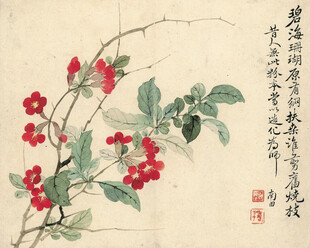 碧海珊瑚原有網扶桑誰剪舊燒枝
昔人無此粉本嘗以造化為師
南田